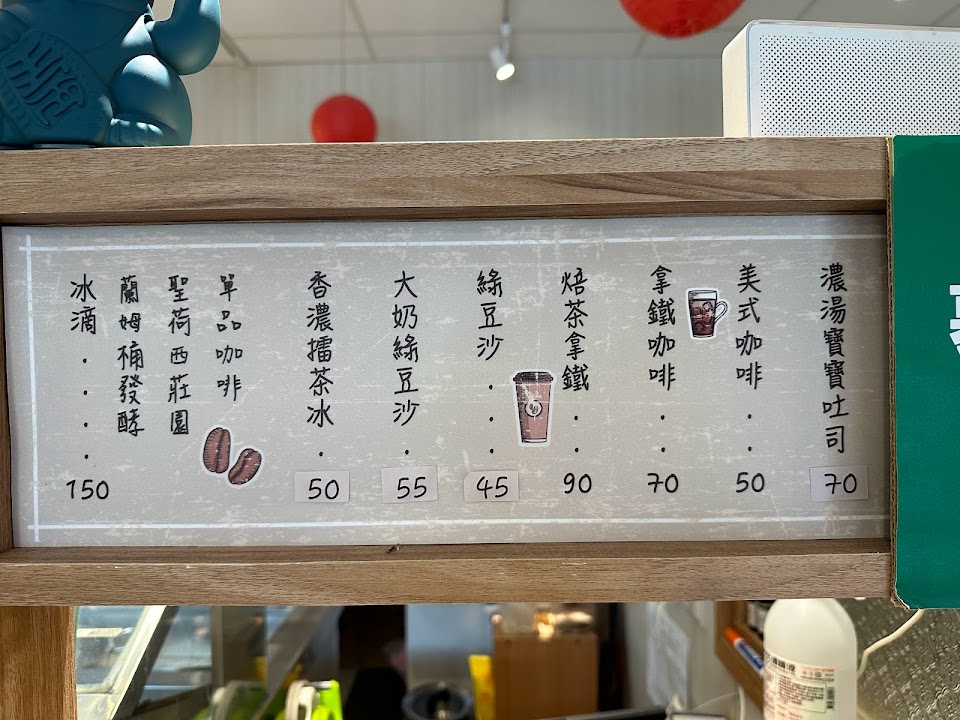 濃湯寶寶吐司 70
美式咖啡..50
拿鐵咖啡..70
焙茶拿鐵..90
綠豆沙...45
大奶綠豆沙.55
香濃擂茶冰.50
單品咖啡
聖荷西莊園
蘭姆桶發酵
冰滴....150